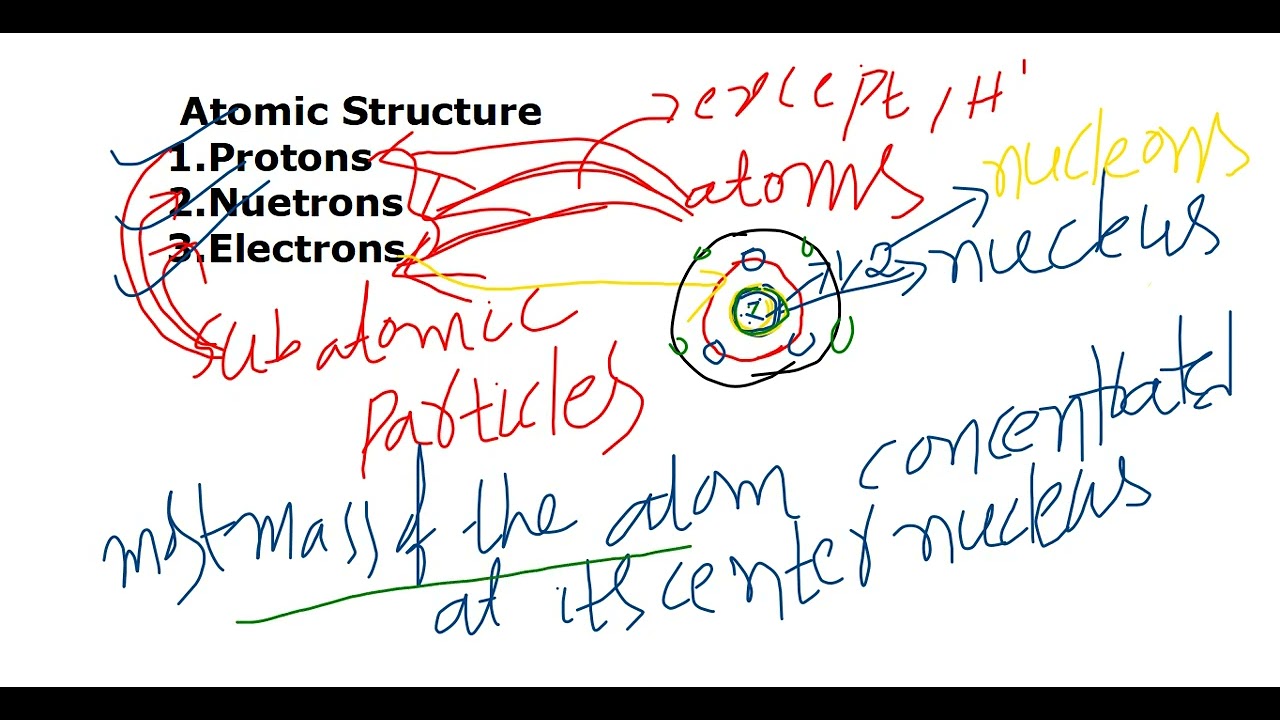 Atomic Structure
1.Protons
2.Nuetrons
3.Electrons
except, H'
atoms
nucleons
1,2
nucleus
1
Subatomic
Particles
most mass of the atom concentrated
at its center nucleus